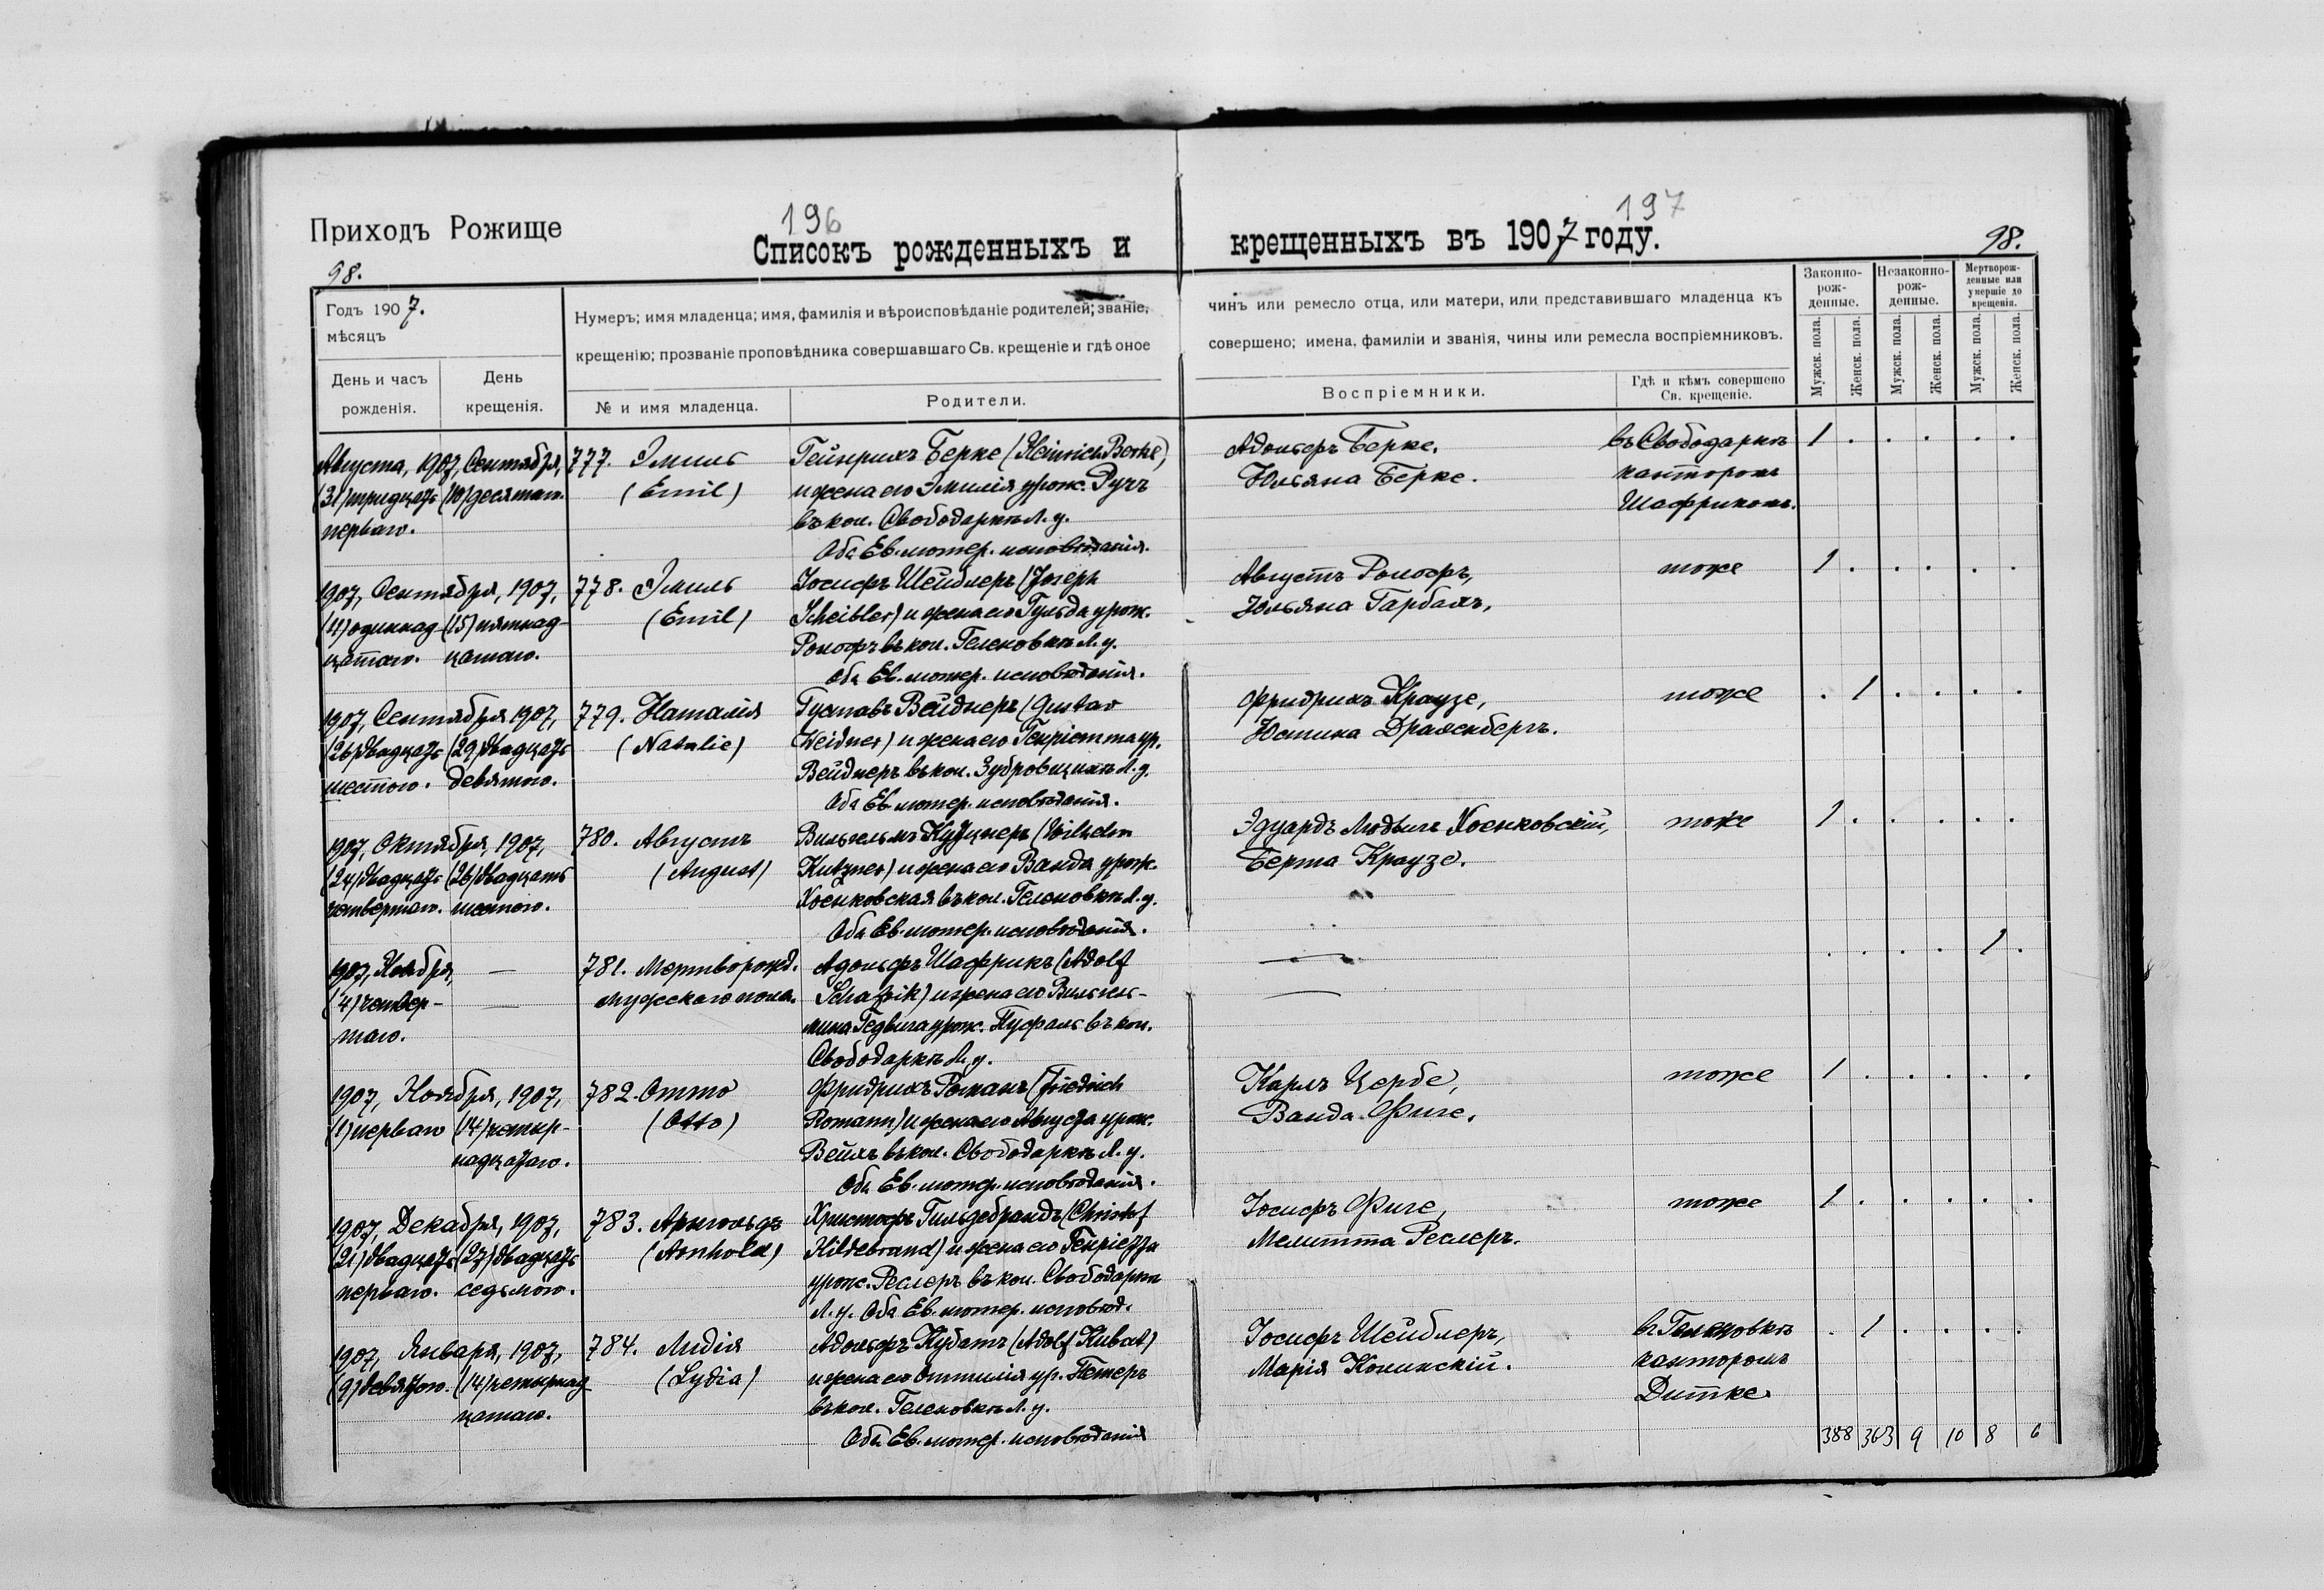 196
197
Приходъ Рожище
Списокъ рожденныхъ и крещенныхъ въ 1907 году.
98.
98.
Годъ 1907.
мѣсяцъ
День и часъ рожденія.
День крещенія.
Нумеръ; имя младенца; имя, фамилія и вѣроисповѣданіе родителей; званіе,
крещенію; прозваніе проповѣдника совершавшаго Св. крещеніе и гдѣ оное
№ и имя младенца.
Родители.
чинъ или ремесло отца, или матери, или представившаго младенца къ
совершено; имена, фамиліи и званія, чины или ремесла воспріемниковъ.
Воспріемники.
Гдѣ и кѣмъ совершено
Св. крещеніе.
Законно-
рож-
денные.
Незаконно-
рож-
денные.
Мертворож-
денные или
умершіе до
крещенія.
Мужск. пола.
Женск. пола.
Мужск. пола.
Женск. пола.
Мужск. пола.
Женск. пола.
Августа, 1907, Сентября,
(31) тридцать (10) десятаго.
перваго.
777. Эмиль
(Emil)
Гейнрихъ Берке (Heinrich Berke)
и жена его Эмилія урож. Рухъ
въ кол. Свободаркѣ Л. у.
Оба Ев.-лютер. исповѣданія.
Адольфъ Берке.
Юльяна Берке.
въ Свободаркѣ
канторомъ
Шафрикомъ.
1 . . . . .
1907, Сентября, 1907,
(11) одиннад- (15) пятнад-
цатаго. цатаго.
778. Эмиль
(Emil)
Іосифъ Шейблеръ (Joseph
Scheibler) и жена его Гульда урож.
Рольфъ въ кол. Геленовкѣ Л. у.
Оба Ев.-лютер. исповѣданія.
Августъ Рольфъ,
Юльяна Гарбахъ,
тоже
1 . . . . .
1907, Сентября 1907,
(26) двадцать (29) двадцать
шестого. девятого.
779. Наталія
(Natalie)
Густавъ Вейднеръ (Gustav
Weidner) и жена его Генріетта ур.
Вейднеръ въ кол. Зубровщинѣ Л. у.
Оба Ев.-лютер. исповѣданія.
Фридрихъ Краузе,
Юстина Драхенбергъ.
тоже
. 1 . . . .
1907, Октября, 1907,
(24) двадцать (26) двадцать
четвертаго. шестого.
780. Августъ
(August)
Вильгельмъ Кутцнеръ (Wilhelm
Kutzner) и жена его Ванда урож.
Хоенковская въ кол. Геленовкѣ Л. у.
Оба Ев.-лютер. исповѣданія.
Эдуардъ Людвигъ Хоенковскій,
Берта Краузе.
тоже
1 . . . . .
1907, Ноября, —
(4) четвер- —
таго.
781. Мертворожд.
мужескаго пола.
Адольфъ Шафрикъ (Adolf
Schafrik) и жена его Вильгель-
мина Гедвига урож. Пуфаль въ кол.
Свободаркѣ Л. у.
—
—
. . . . 1 .
1907, Ноября, 1907,
(1) перваго (14) четыр-
надцатаго.
782. Отто
(Otto)
Фридрихъ Романъ (Friedrich
Romann) и жена его Августа урож.
Вейхъ въ кол. Свободаркѣ Л. у.
Оба Ев.-лютер. исповѣданія.
Карлъ Цербе,
Ванда Фиге.
тоже
1 . . . . .
1907, Декабря, 1907,
(21) двадцать (27) двадцать
перваго. седьмого.
783. Арнгольдъ
(Arnhold)
Христофъ Гильдебрандъ (Christof
Hildebrand) и жена его Генріетта
урож. Реслеръ въ кол. Свободаркѣ
Л. у. Оба Ев.-лютер. исповѣд.
Іосифъ Фиге,
Мелитта Реслеръ.
тоже
1 . . . . .
1907, Января, 1907,
(9) девятого. (14) четырнад-
цатаго.
784. Лидія
(Lydia)
Адольфъ Кубатъ (Adolf Kubat)
и жена его Оттилія ур. Петеръ
въ кол. Геленовкѣ Л. у.
Оба Ев.-лютер. исповѣданія
Іосифъ Шейблеръ,
Марія Колинскій.
въ Геленовкѣ
канторомъ
Дитке.
. 1 . . . .
388 363 9 10 8 6